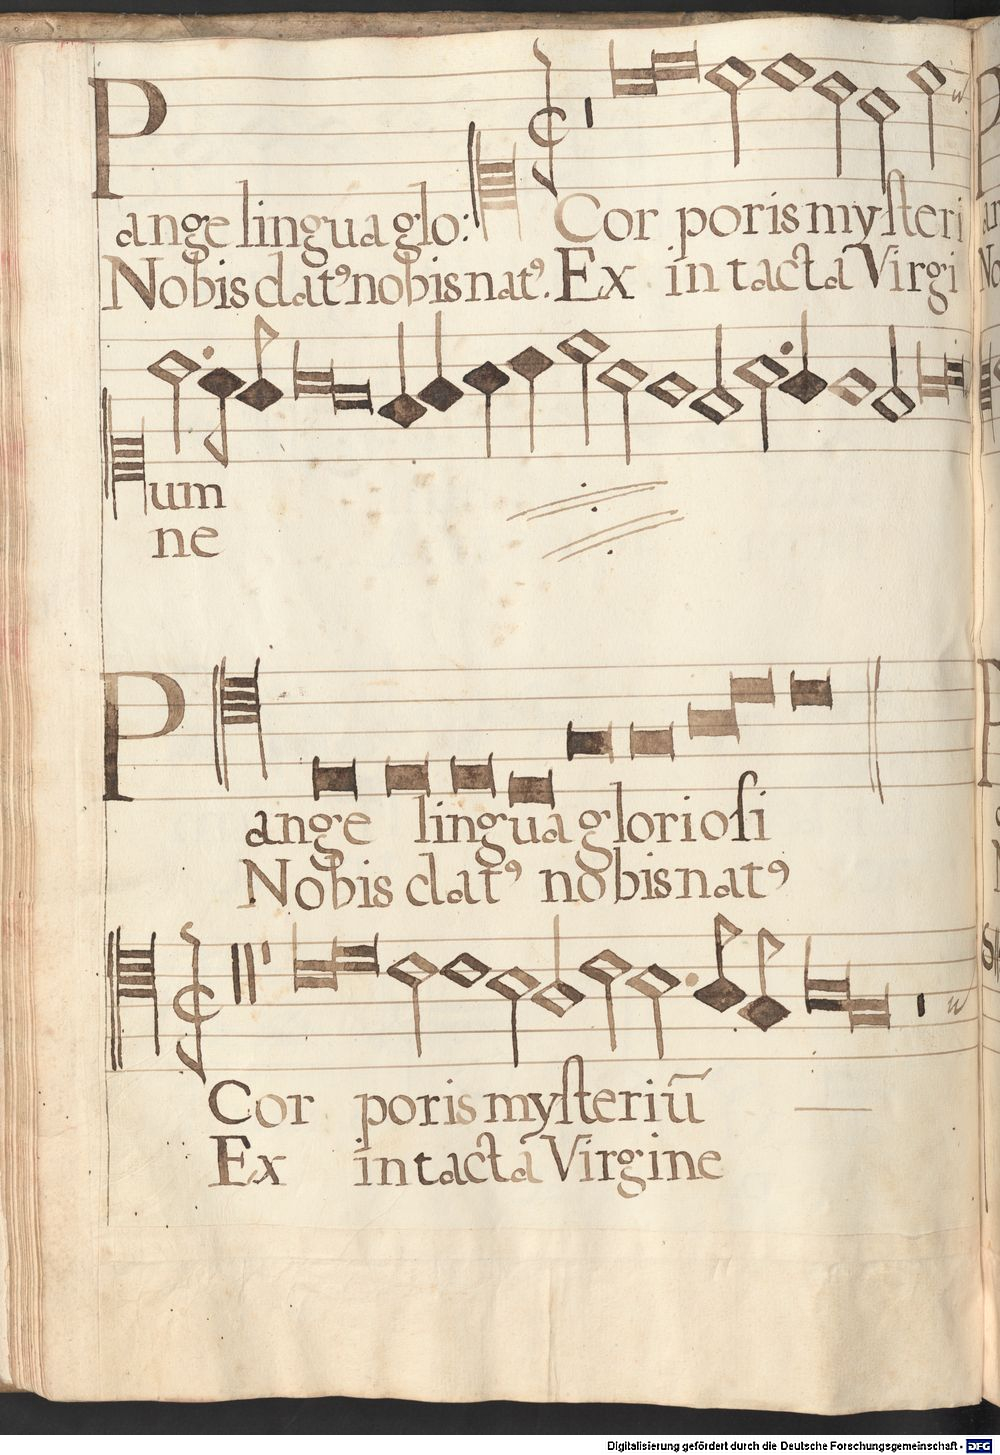 Pange lingua glo: Cor poris mysteri
Nobis datꝰ nobis natꝰ. Ex in tacta Virgi
um
ne
Pange lingua gloriosi
Nobis datꝰ nobis natꝰ
Cor poris mysteriū
Ex in tacta Virgine
Digitalisierung gefördert durch die Deutsche Forschungsgemeinschaft - DFG